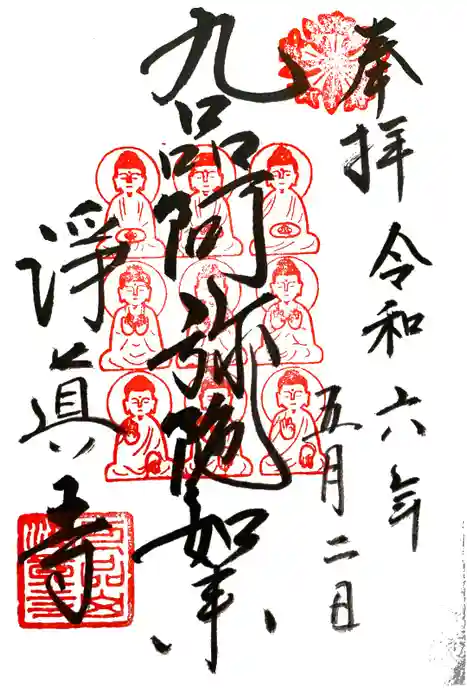 奉拝
令和六年
五月二日
九品阿弥陀如来
浄真寺